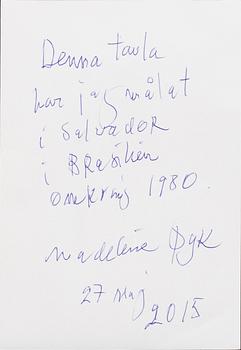 Denna tavla
har jag målat
i Salvador
i BRasilien
omkring 1980.
Madeleine Pyk
27 maj
2015